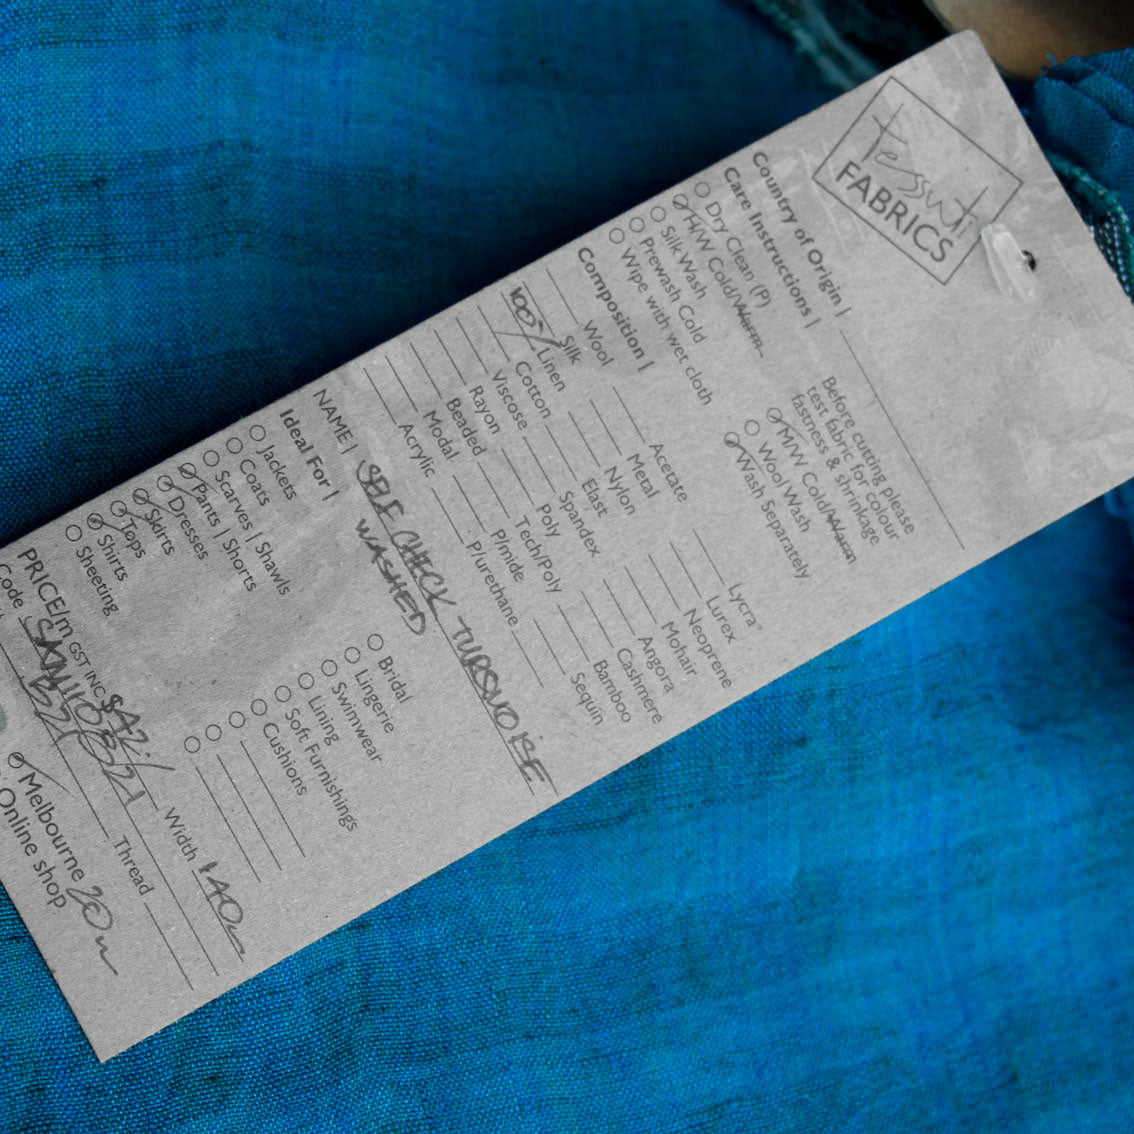 tessuti
FABRICS
Country of Origin |
Care Instructions |
Dry Clean (P)
H/W Cold/Warm
Silk Wash
Prewash Cold
Wipe with wet cloth
Before cutting please
test fabric for colour
fastness & shrinkage
M/W Cold/Warm
Wool Wash
Wash Separately
Composition |
Wool Acetate Lycra
Silk Metal Lurex
100% Linen Nylon Neoprene
Cotton Elast Mohair
Viscose Spandex Angora
Rayon Poly Cashmere
Beaded Tech/Poly Bamboo
Modal P/mide Sequin
Acrylic P/urethane
NAME | SELF CHECK TURQUOISE
WASHED
Ideal For |
Jackets Bridal
Coats Lingerie
Scarves | Shawls Swimwear
Pants | Shorts Lining
Dresses Soft Furnishings
Skirts Cushions
Tops
Shirts
Sheeting
PRICE/m GST INC Width 140
Code Thread
Melbourne 20m
Online shop